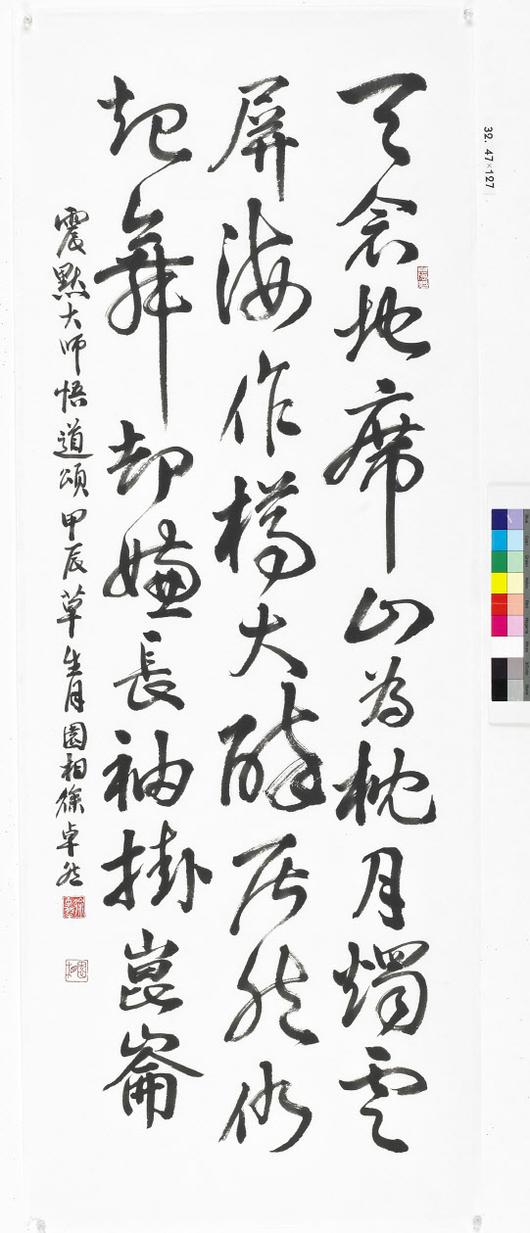 天衾地席山為枕月燭雲
屏海作樽大醉居然仍
起舞却嫌長袖掛崑崙
震默大師悟道頌 甲辰草生月園相徐卓然
32. 47×127